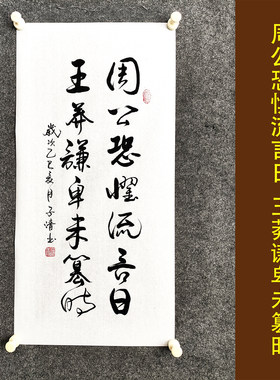 周公恐惧流言日
王莽謙卑未篡時
歲次乙巳夏月子清書
周公恐惧流言日 王莽谦卑未篡时